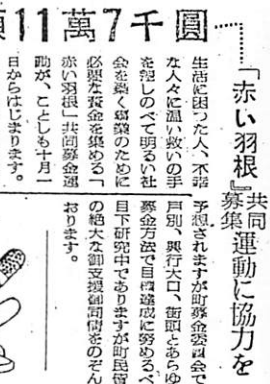 額11萬7千圓
「赤い羽根』共同募集運動に協力を
生活に困った人、不幸
な人々に温い救いの手
を差しのべて明るい社
会を築く事業のために
必要な資金を集める「
赤い羽根」共同募金運
動が、ことしも十月一
日からはじまります。
予想されますが町募金委員会で
戸別、興行大口、街頭とあらゆ
募金方法で目標達成に努めるべ
目下研究中でありますが町民皆
の絶大な御支援御同情をのぞん
おります。